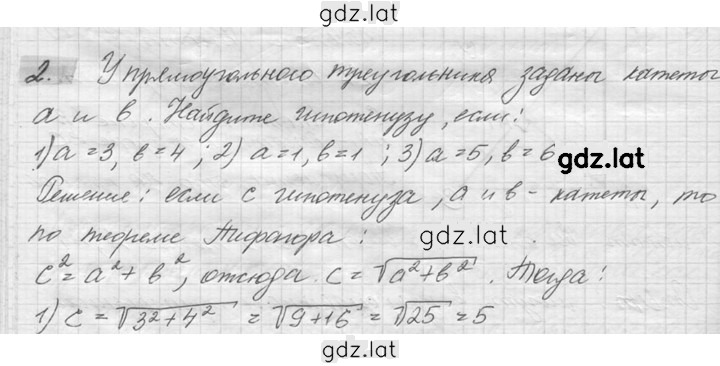 gdz.lat
2. У прямоугольного треугольника заданы катеты
а и в. Найдите гипотенузу, если:
1) а=3, в=4; 2) а=1, в=1; 3) а=5, в=6
gdz.lat
Решение: если с гипотенуза, а и в - катеты, то
по теореме Пифагора:
gdz.lat
c²=a²+в², отсюда c=√a²+в². Тогда:
1) c=√3²+4² =√9+16 =√25 =5
gdz.lat